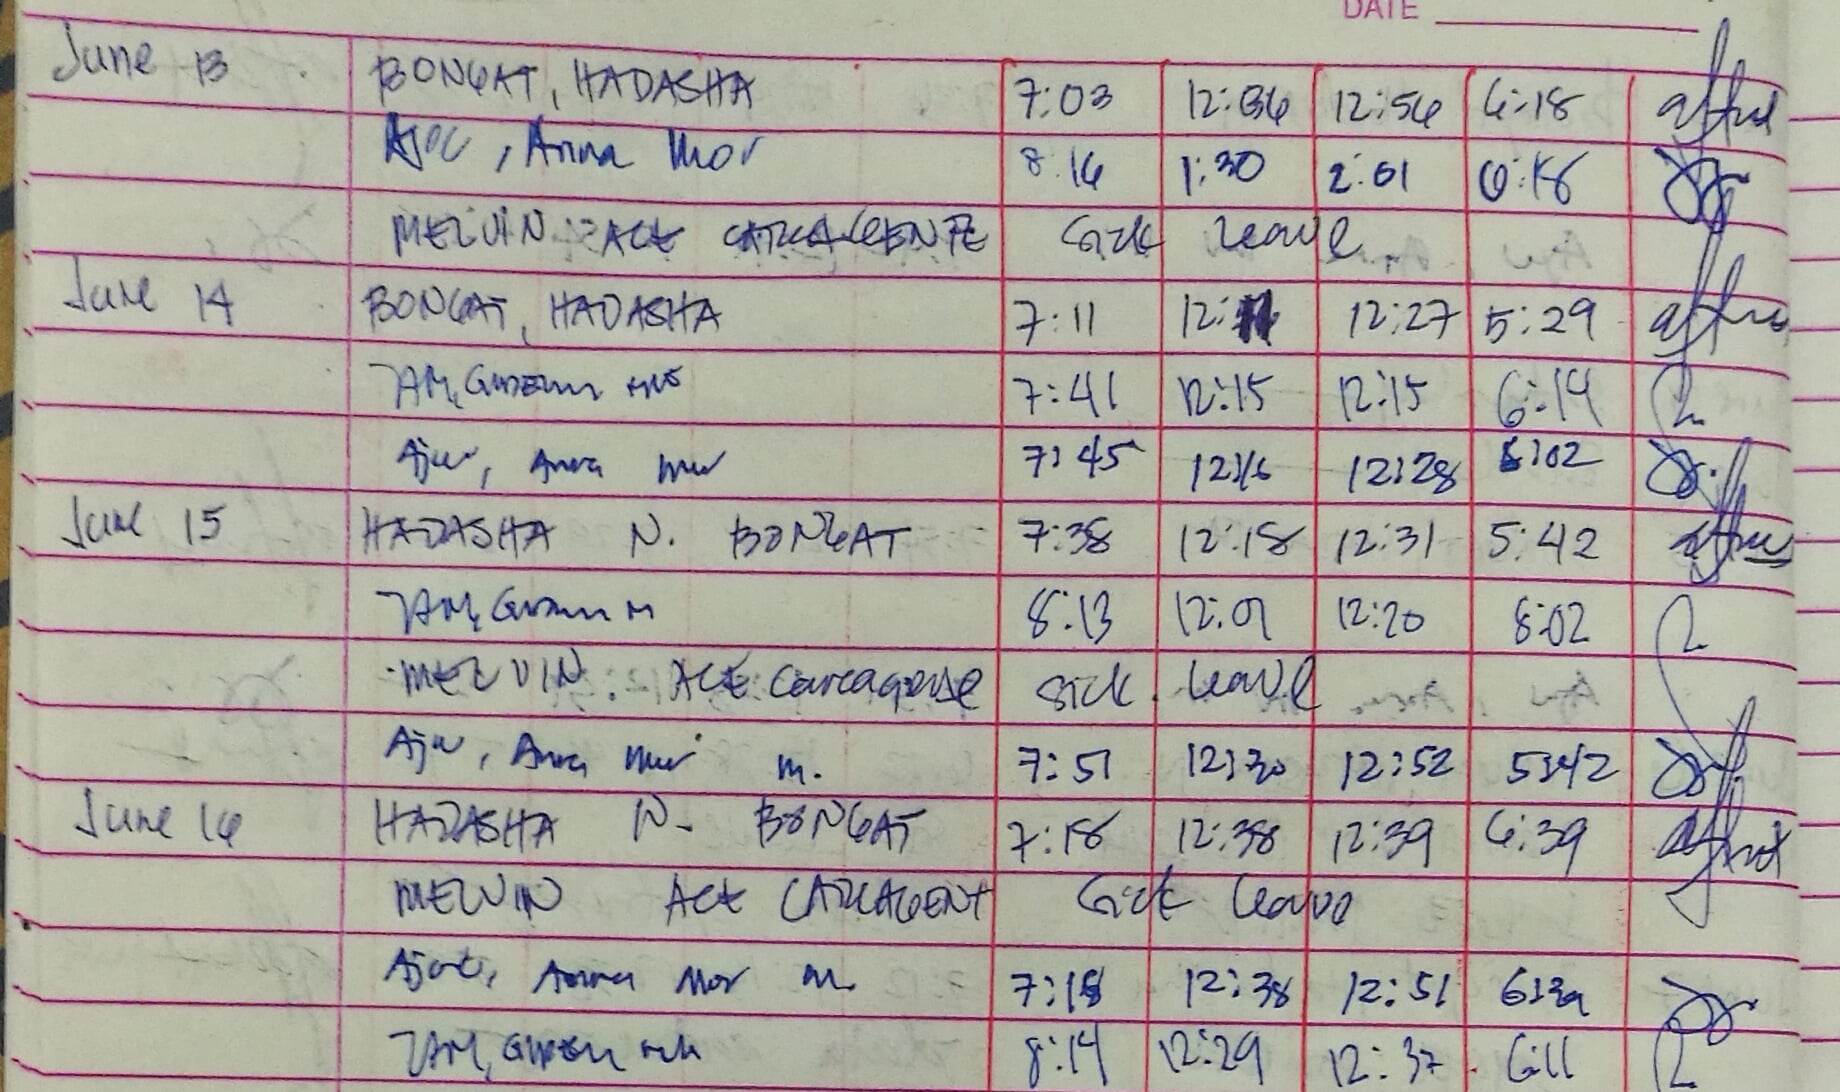 DATE
June 13 BONGAT, HADASHA 7:03 12:36 12:56 6:18
Anna Mor 8:16 1:30 2:01 6:18
MELVIN ACE CARCAGENTE Sick leave
June 14 BONGAT, HADASHA 7:11 12:11 12:27 5:29
7:41 12:15 12:15 6:14
Anna Mor 7:45 12:16 12:28 6:02
June 15 HADASHA N. BONGAT 7:38 12:18 12:31 5:42
8:13 12:01 12:20 8:02
MELVIN ACE Carcagente sick leave
Anna Mor M. 7:51 12:30 12:52 5:42
June 16 HADASHA N. BONGAT 7:18 12:38 12:39 6:39
MELVIN ACE CARCAGENT Sick leave
Anna Mor M. 7:18 12:38 12:51 6:39
8:14 12:29 12:37 6:11